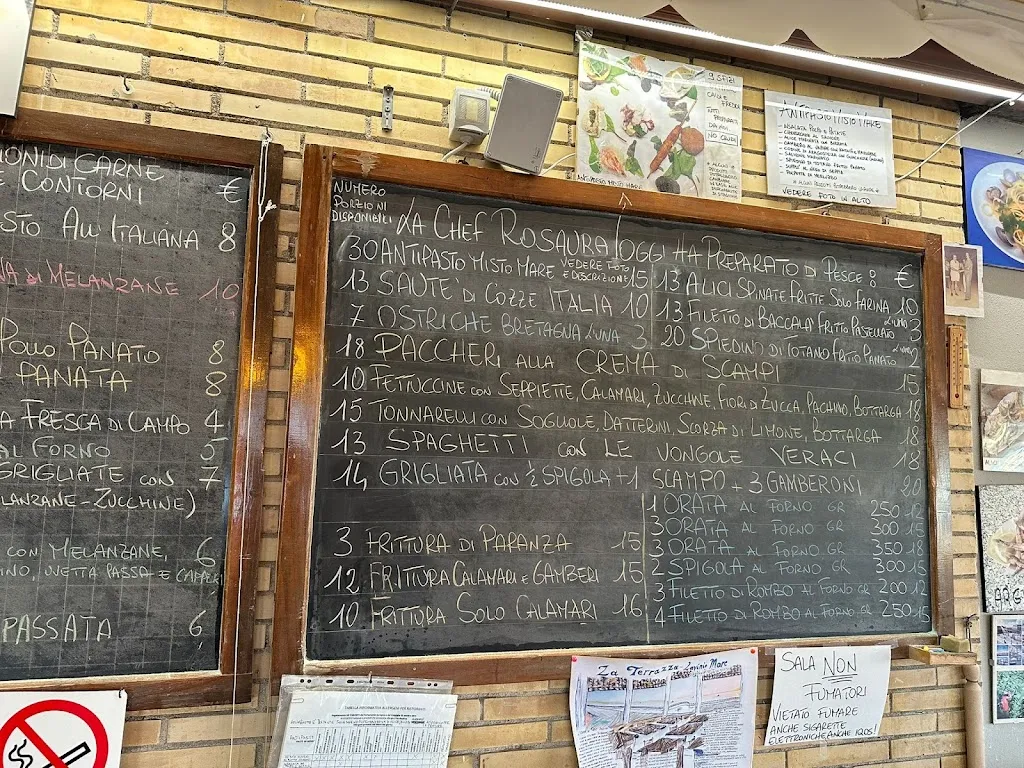 ONI DI CARNE
E CONTORNI €
STO ALL'ITALIANA 8
NA DI MELANZANE 10
POLLO PANATO 8
PANATA 8
A FRESCA DI CAMPO 4
AL FORNO 5
GRIGLIATE CON 7
LANZANE-ZUCCHINE)
CON MELANZANE, 6
INO, UVETTA PASSA E CAPPERI
PASSATA 6
NUMERO
PORZIONI
DISPONIBILI
LA CHEF ROSAURA OGGI HA PREPARATO DI PESCE: €
30 ANTIPASTO MISTO MARE VEDERE FOTO E DESCRIZIONE 15
13 SAUTE' DI COZZE ITALIA 10
7 OSTRICHE BRETAGNA L'UNA 3
13 ALICI SPINATE FRITTE SOLO FARINA 10
13 FILETTO DI BACCALA' FRITTO PASTELLATO L'UNO 3
20 SPIEDINO DI TOTANO FRITTO PANATO L'UNO 2
18 PACCHERI ALLA CREMA DI SCAMPI 15
10 FETTUCCINE CON SEPPIETTE, CALAMARI, ZUCCHINE, FIORI DI ZUCCA, PACHINO, BOTTARGA 18
15 TONNARELLI CON SOGLIOLE, DATTERINI, SCORZA DI LIMONE, BOTTARGA 18
13 SPAGHETTI CON LE VONGOLE VERACI 18
14 GRIGLIATA CON ½ SPIGOLA + 1 SCAMPO + 3 GAMBERONI 20
3 FRITTURA DI PARANZA 15
12 FRITTURA CALAMARI E GAMBERI 15
10 FRITTURA SOLO CALAMARI 16
1 ORATA AL FORNO GR 250 12
3 ORATA AL FORNO GR 300 15
3 ORATA AL FORNO GR 350 18
2 SPIGOLA AL FORNO GR 300 15
3 FILETTO DI ROMBO AL FORNO GR 200 12
4 FILETTO DI ROMBO AL FORNO GR 250 15
9 SFIZI
CALDI E
FREDDI
TUTTI
PREPARATI
DA NOI
NO CRUDI
ANTIPASTO MISTO MARE
ANTIPASTO MISTO MARE
- INSALATA POLPO E PATATE
VEDERE FOTO IN ALTO
La Terrazza Lavinio Mare
SALA NON
FUMATORI
VIETATO FUMARE
ANCHE SIGARETTE
ELETTRONICHE ANCHE IQOS!